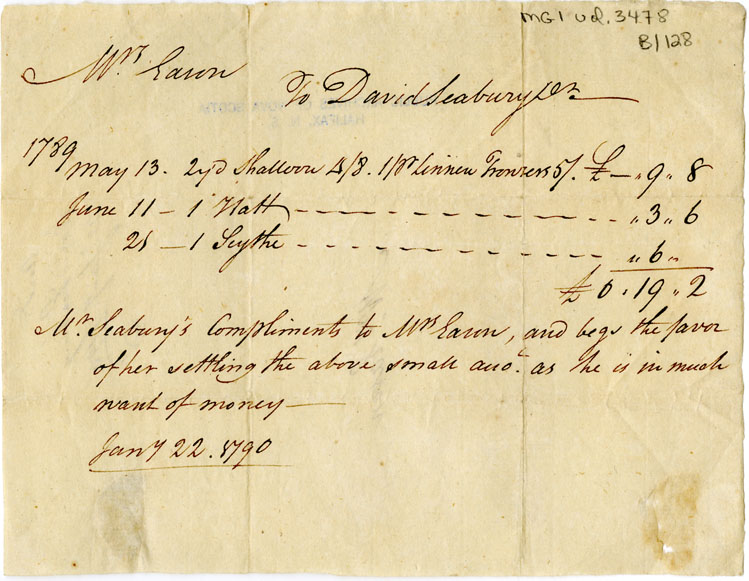 MG1 vol. 3478
B/128
Mrs Eason
To David Seabury Dr.
1789
May 13. 2yd Shalloon 4/8. 1 Pr Linnen Trowzers 5/. £ — " 9 " 8
June 11 — 1 Hatt — " 3 " 6
25 — 1 Scythe — " 6 "
£ 0 " 19 " 2
Mr. Seabury's Compliments to Mrs Eason, and begs the favor
of her settling the above small acco.t as he is in much
want of money —
Jany 22. 1790